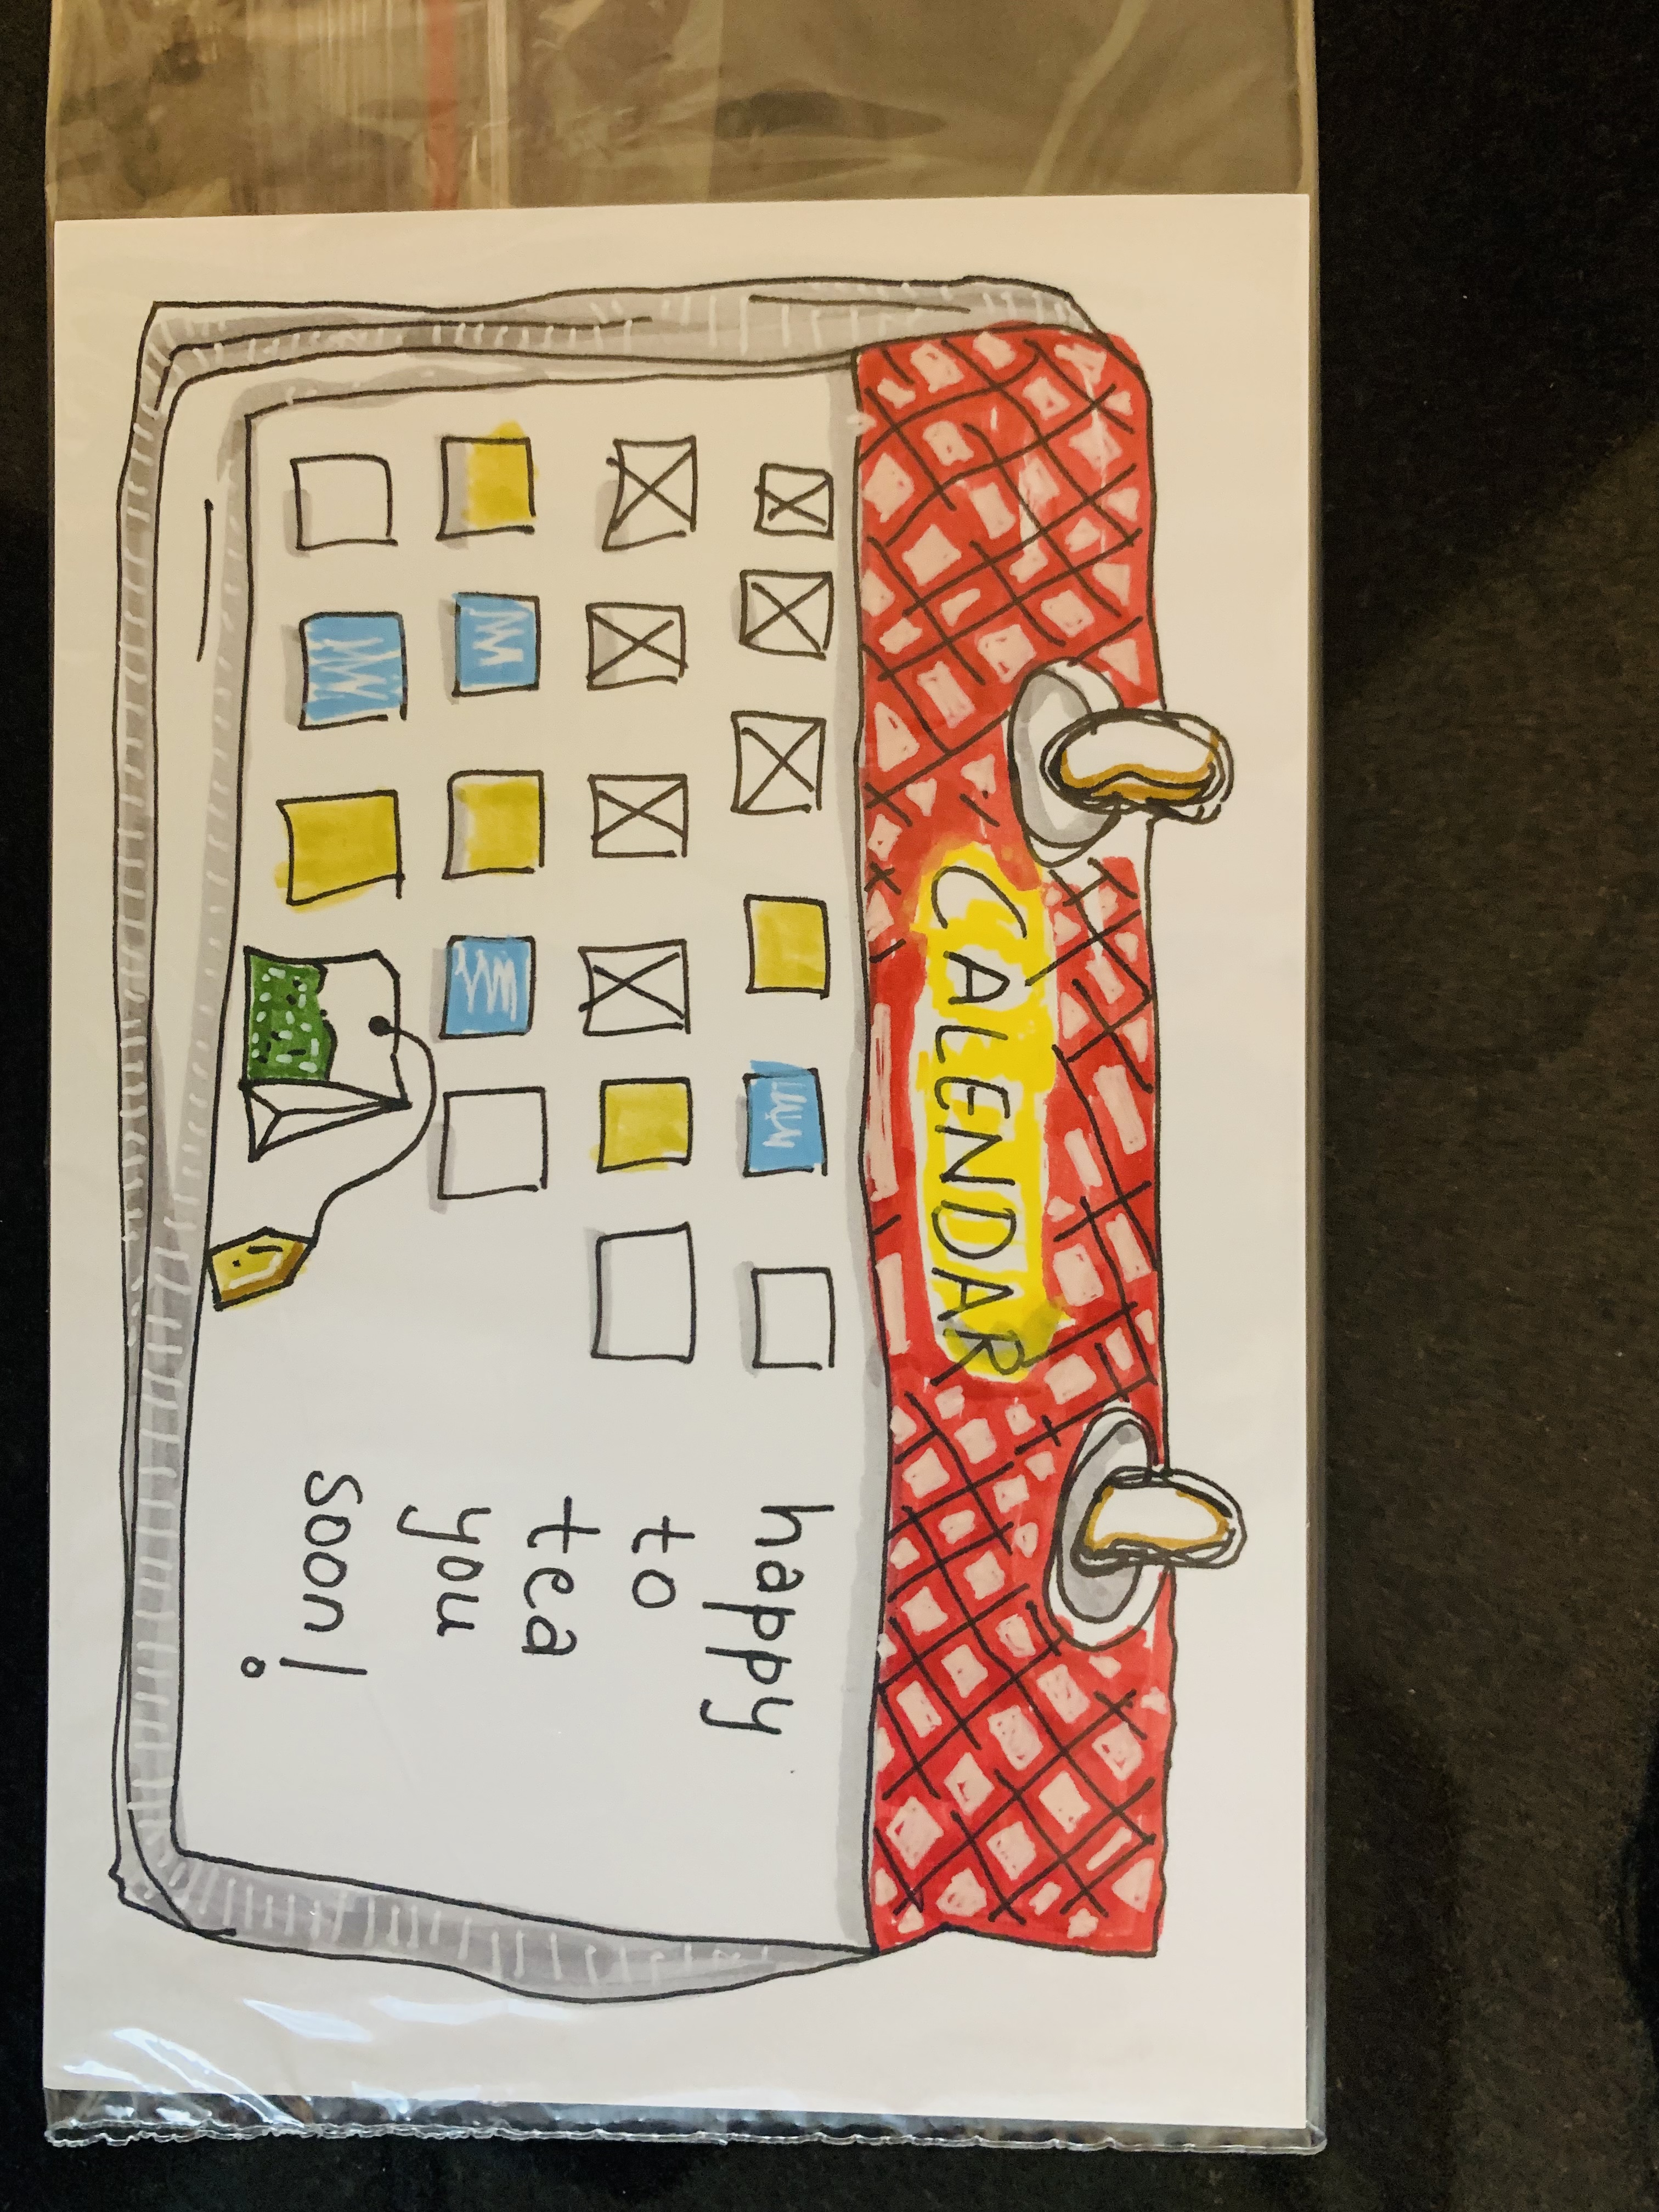 CALENDAR
happy
to
tea
you
soon!